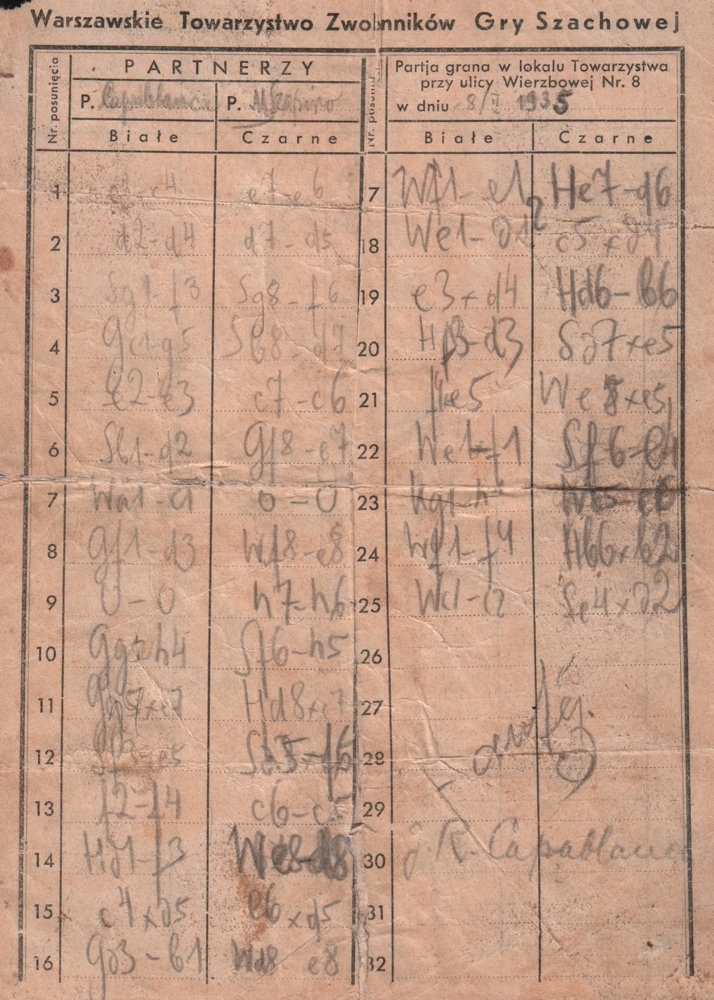 Warszawskie Towarzystwo Zwolnników Gry Szachowej
Nr. posunięcia
PARTNERZY
P. Capablanca P. M Szapiro
Białe Czarne
Partja grana w lokalu Towarzystwa
przy ulicy Wierzbowej Nr. 8
w dniu 8/ 1935
Białe Czarne
1 e7-e6
2 d2-d4 d7-d5
3 Sg1-f3 Sg8-f6
4 Gc1-g5 Sb8-d7
5 e2-e3 c7-c6
6 Sb1-d2 Gf8-e7
7 Wa1-c1 0-0
8 Gf1-d3 Wf8-e8
9 0-0 h7-h6
10 Gg5-h4 Sf6-h5
11 xe7 Hd8xe7
12 -e5 -f6
13 f2-f4 c6-c5
14 Hd1-f3 -d8
15 c4xd5 e6xd5
16 Gd3-b1 Wd8-e8
7 Wf1-e1 He7-d6
18 We1- c5xd4
19 e3xd4 Hd6-b6
20 Hf3-d3 Sd7xe5
21 fxe5 We8xe5
22 We1-f1 Sf6-e4
23 Kg1-h1
24 Wf1-f4 Hb6xb2
25 Se4xd2
26
27
28
29
30 J. R. Capablanca
31
32